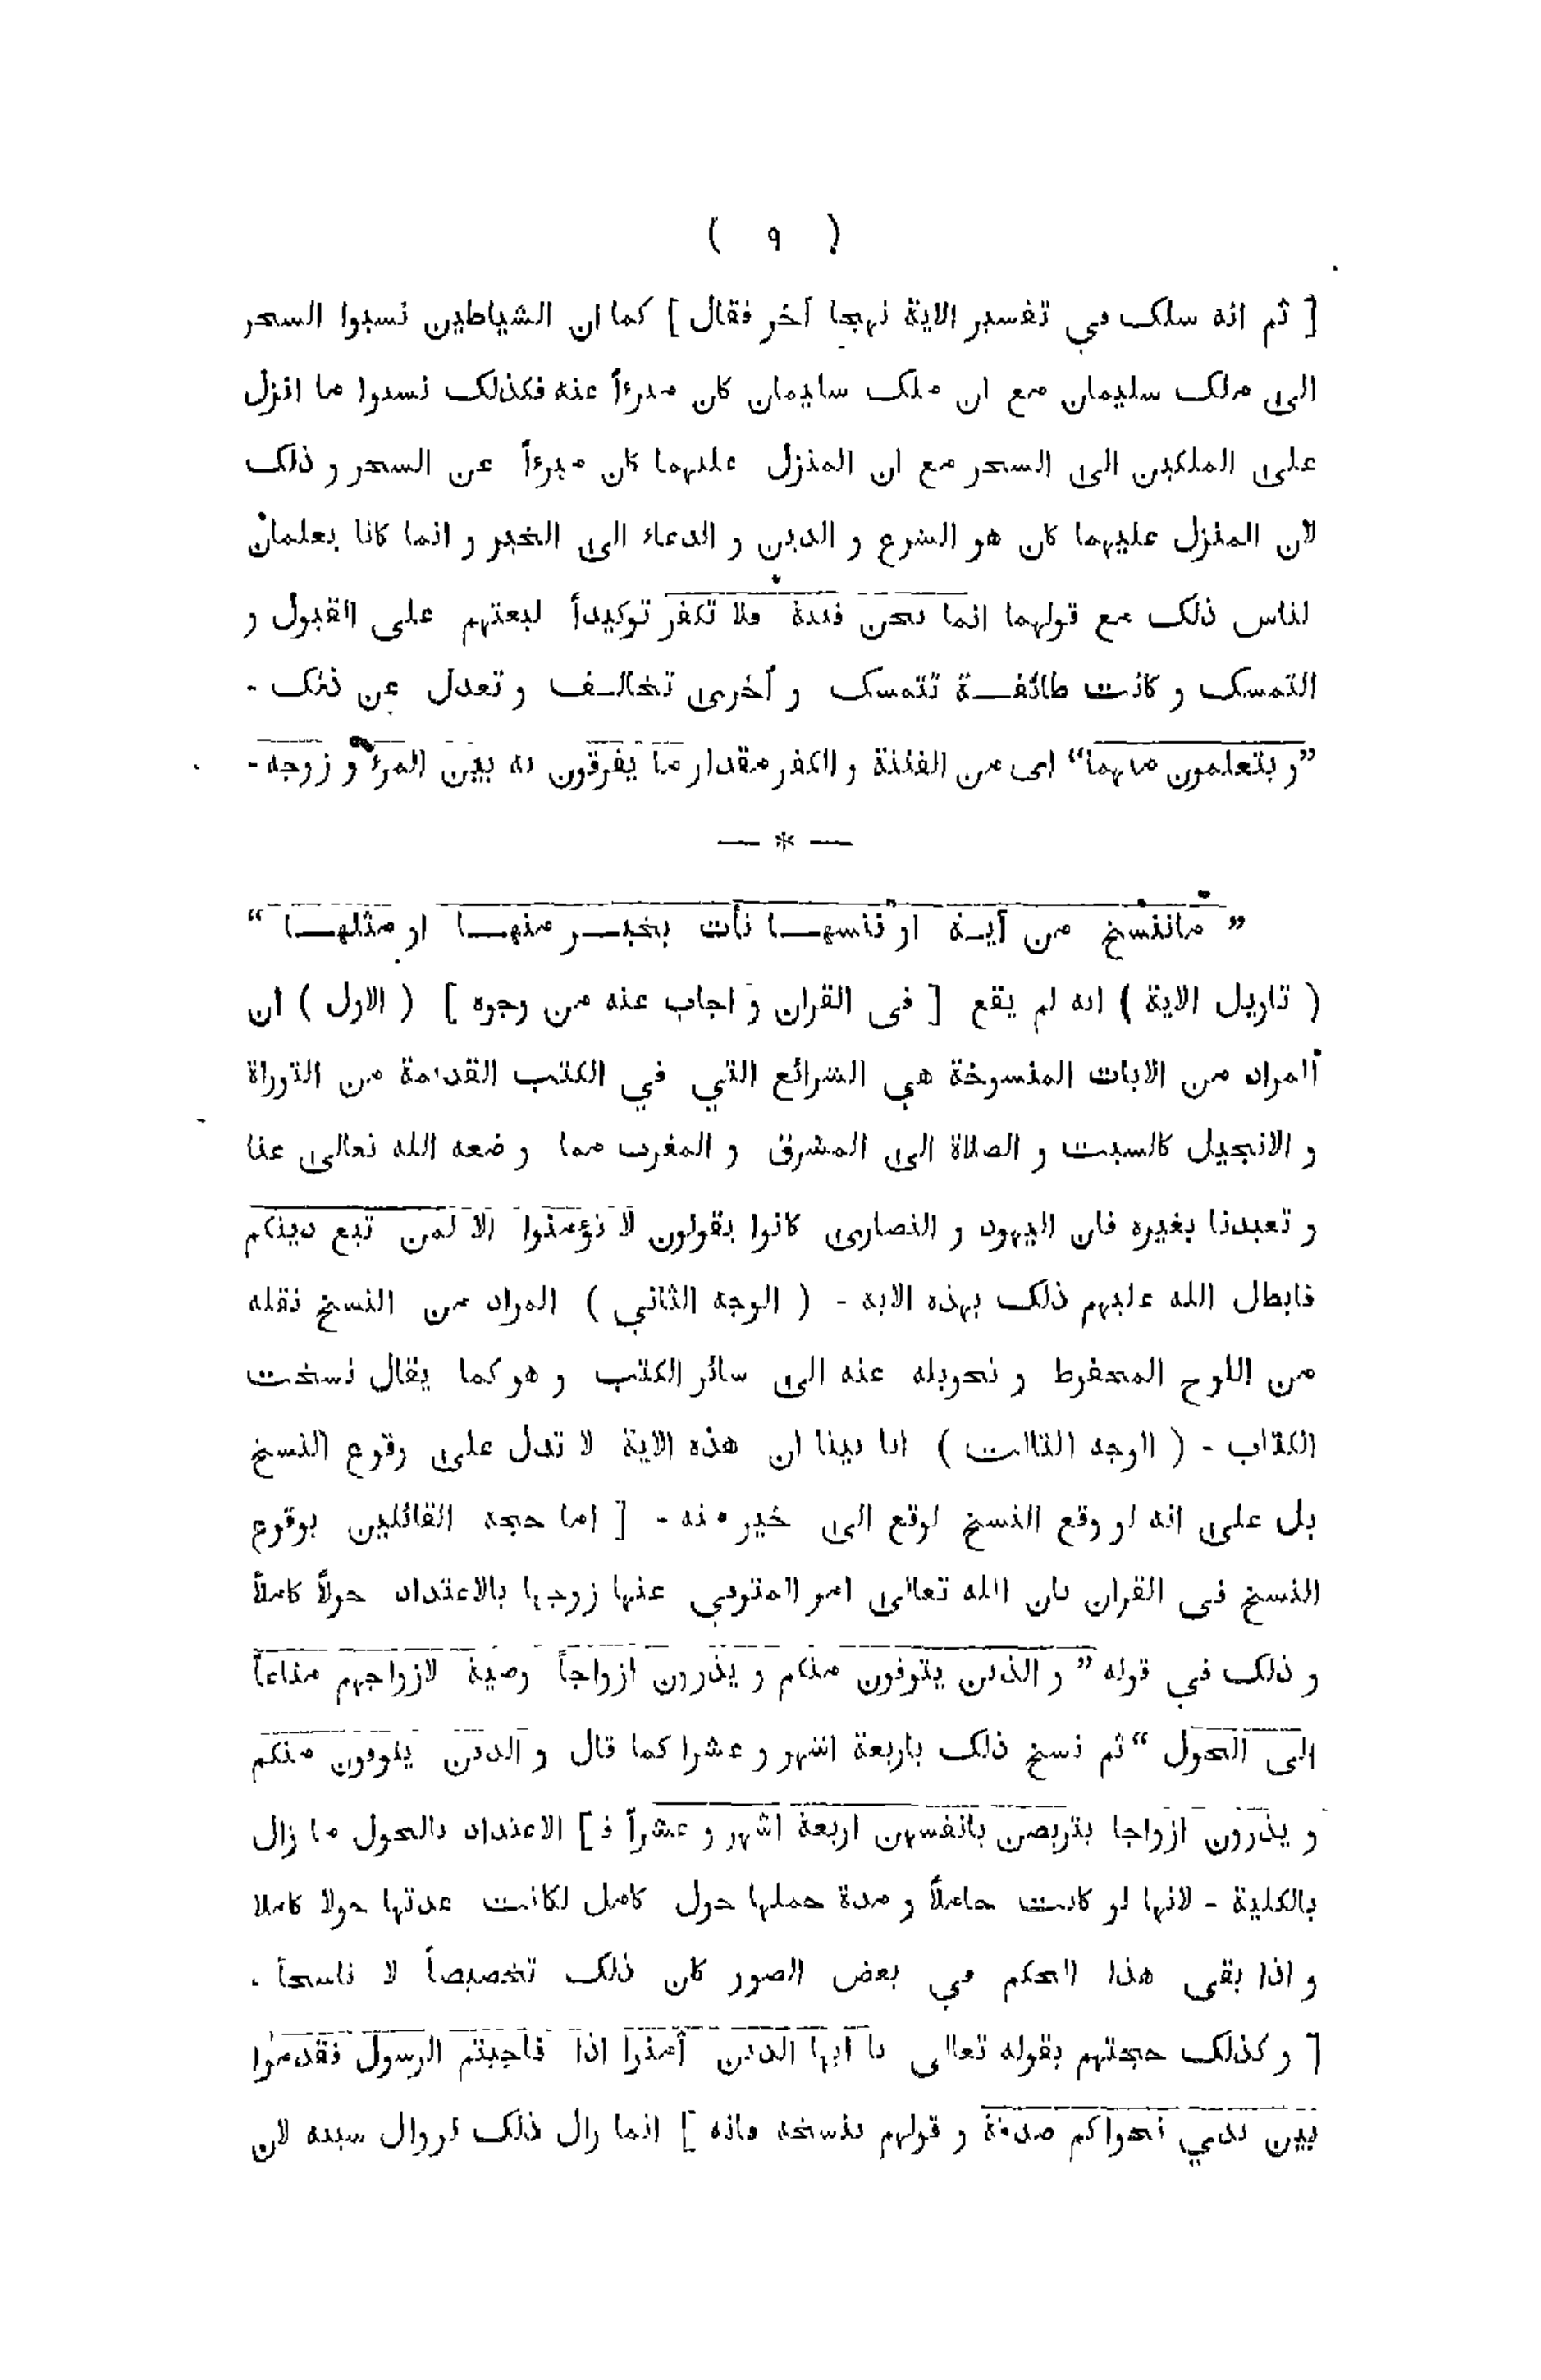 ( ٩ )
[ ثم انه سلک في تفسير الاية نهجا آخر فقال ] كما ان الشياطين نسبوا السحر
الى ملک سليمان مع ان ملک سليمان كان مبرءاً عنه فكذلک نسبوا ما انزل
على الملكين الى السحر مع ان المنزل عليهما كان مبرءاً عن السحر و ذلک
لان المنزل عليهما كان هو الشرع و الدين و الدعاء الى الخير و انما كانا يعلمان
لناس ذلک مع قولهما انما نحن فتنة فلا تكفر توكيداً لبعثهم على القبول و
التمسک و كانت طائفــة تتمسک و أخرى تخالــف و تعدل عن ذلک -
”و يتعلمون منهما“ اى من الفتنة و الكفر مقدار ما يفرقون به بين المرء و زوجه -
— * —
” ماننسخ من آيــة او ننسهــا نأت بخيــر منهــا او مثلهــا “
( تاويل الاية ) انه لم يقع [ فى القران و اجاب عنه من وجوه ] ( الاول ) ان
المراد من الايات المنسوخة هي الشرائع التي في الكتب القديمة من التوراة
و الانجيل كالسبت و الصلاة الى المشرق و المغرب مما و ضعه الله تعالى عنا
و تعبدنا بغيره فان اليهود و النصارى كانوا يقولون لا تؤمنوا الا لمن تبع دينكم
فابطل الله عليهم ذلک بهذه الاية - ( الوجه الثاني ) المراد من النسخ نقله
من اللوح المحفوظ و تحويله عنه الى سائر الكتب و هو كما يقال نسخت
الكتاب - ( الوجه الثالث ) انا بينا ان هذه الاية لا تدل على وقوع النسخ
بل على انه لو وقع النسخ لوقع الى خير منه - [ اما حجة القائلين بوقوع
النسخ فى القران بان الله تعالى امر المتوفي عنها زوجها بالاعتداد حولاً كاملاً
و ذلک في قوله ” و الذين يتوفون منكم و يذرون ازواجاً وصية لازواجهم متاعاً
الى الحول “ ثم نسخ ذلک باربعة اشهر و عشرا كما قال و الذين يتوفون منكم
و يذرون ازواجا يتربصن بانفسهن اربعة اشهر و عشراً فـ ] الاعتداد بالحول ما زال
بالكلية - لانها لو كانت حاملاً و مدة حملها حول كامل لكانت عدتها حولا كاملا
و اذا بقى هذا الحكم في بعض الصور كان ذلک تخصيصاً لا ناسخاً .
[ و كذلک حجتهم بقوله تعالى يا ايها الذين آمنوا اذا ناجيتم الرسول فقدموا
بين يدي نجواكم صدقة و قولهم بنسخه فانه ] انما زال ذلک لزوال سببه لان